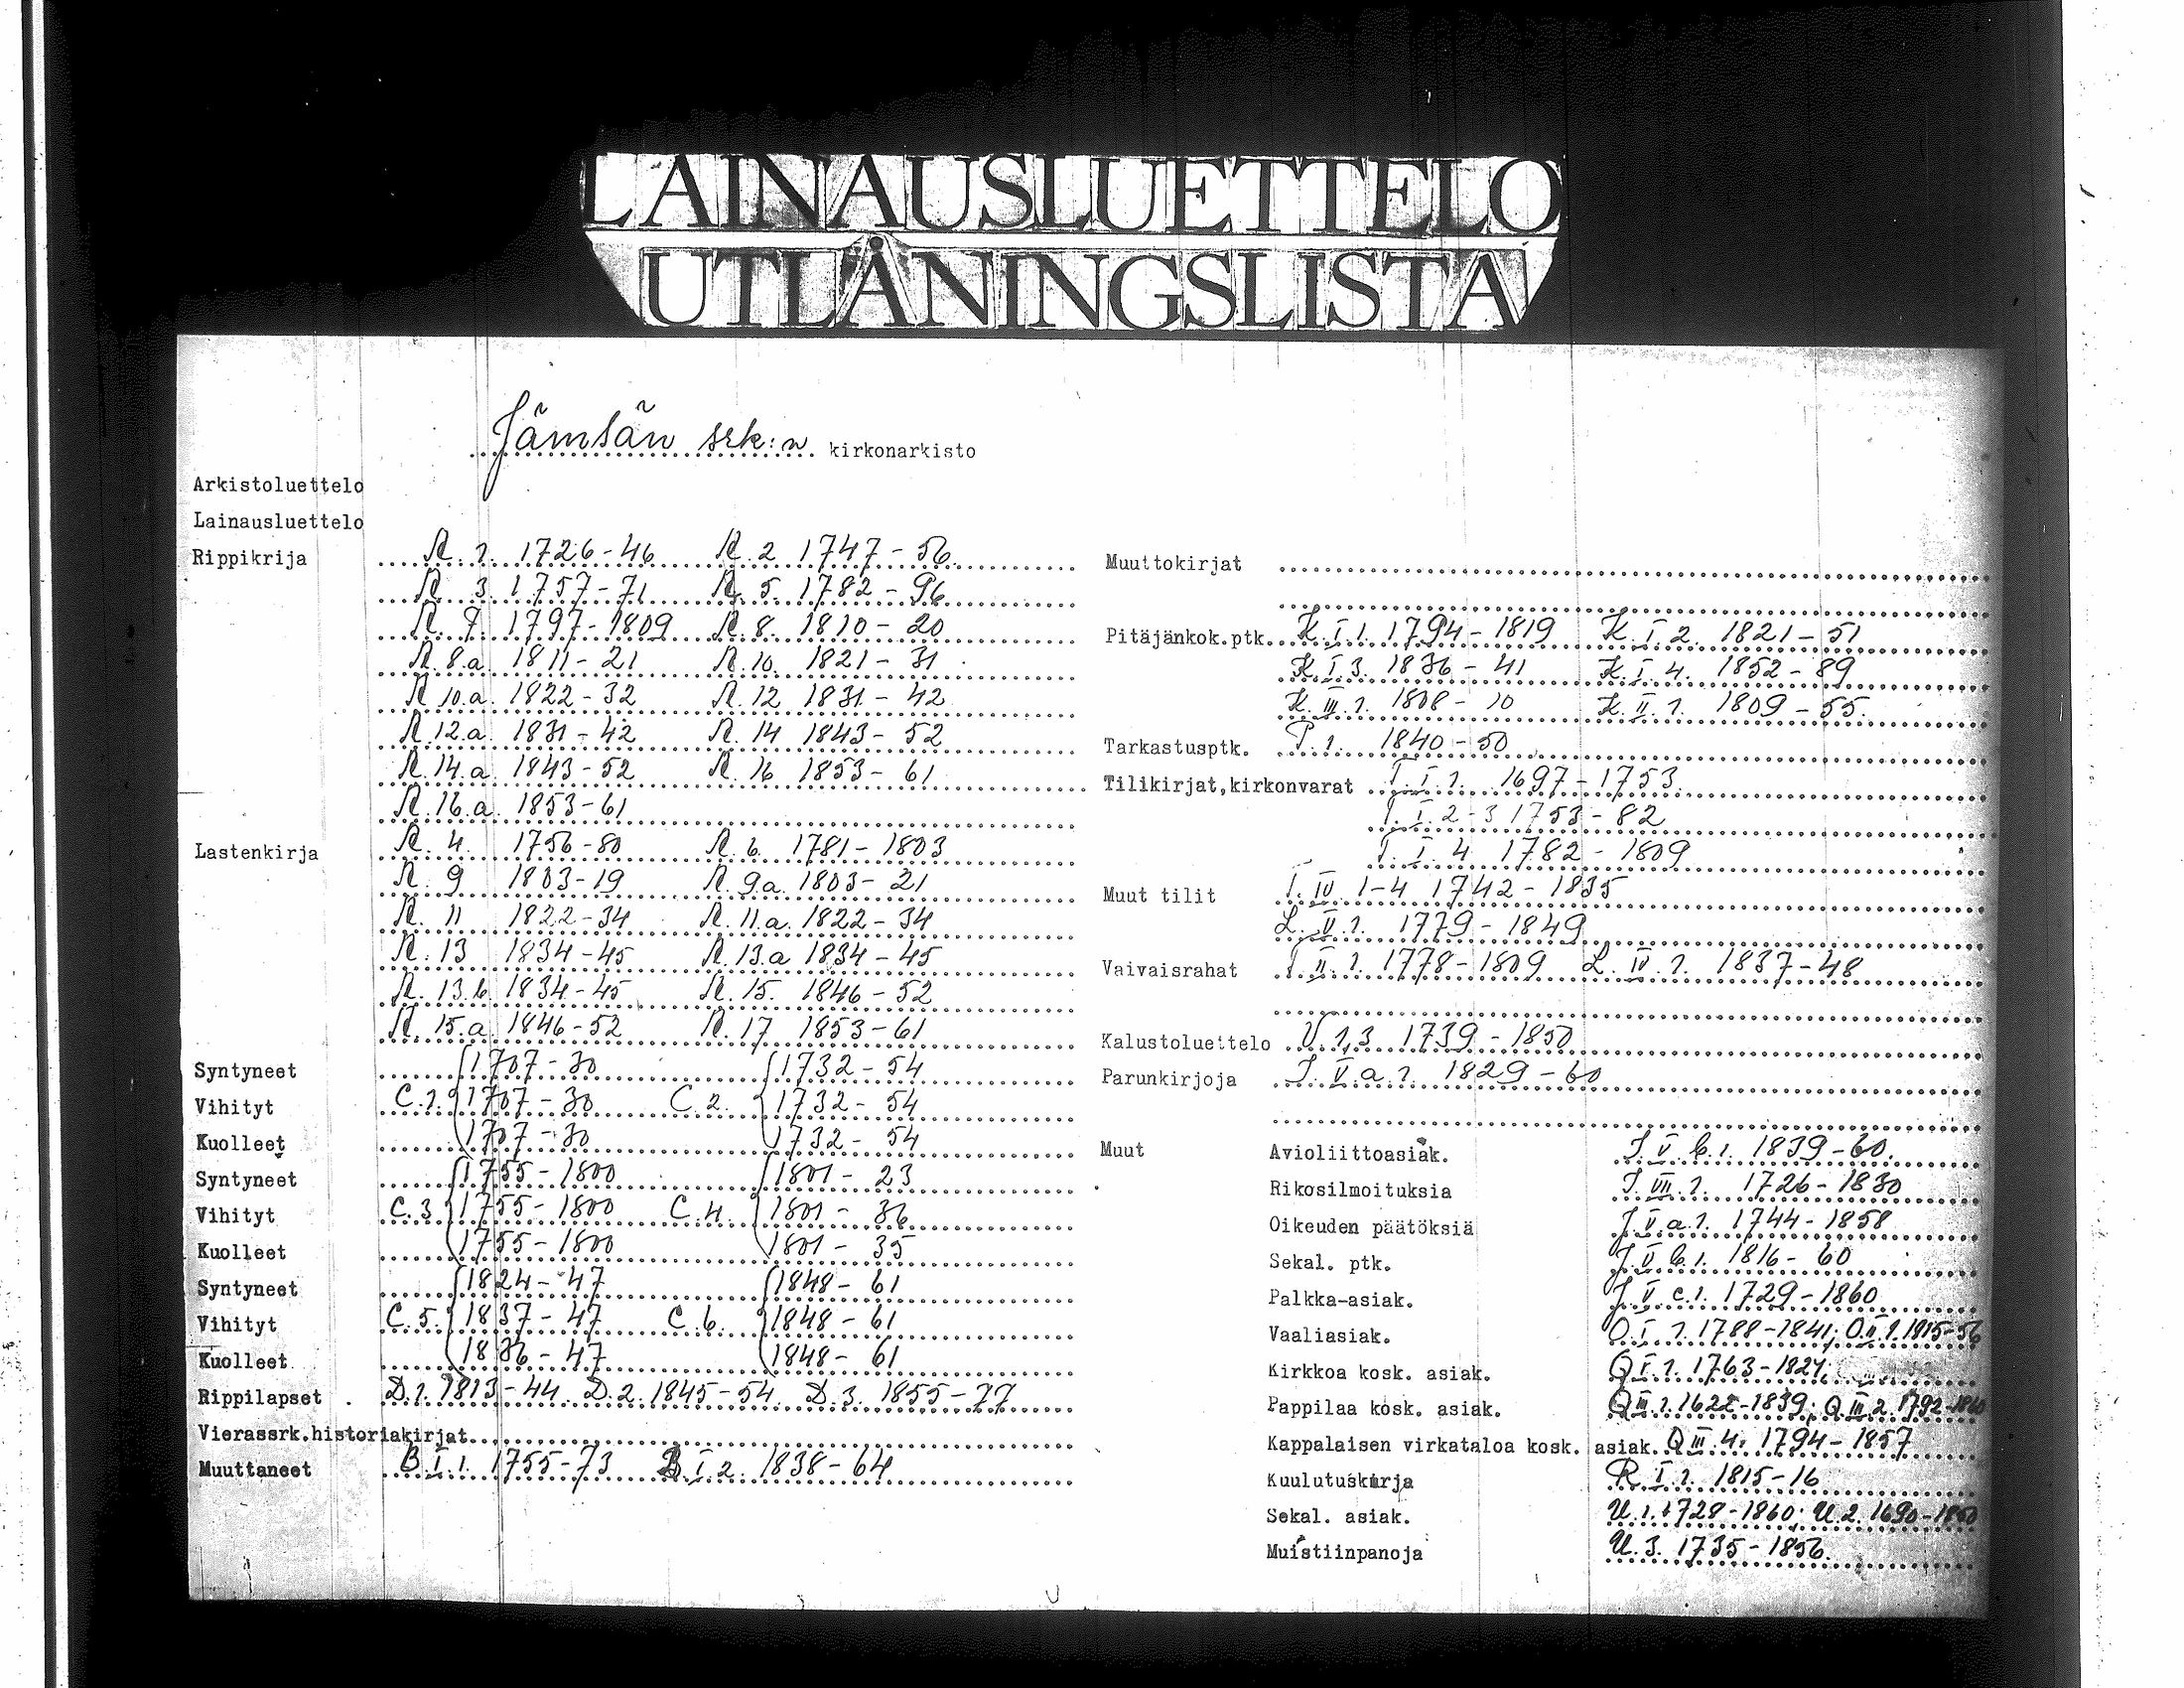 LAINAUSLUETTELO
UTLÅNINGSLISTA
Jämsän srk:n kirkonarkisto
Arkistoluettelo
Lainausluettelo
Rippikrija R. 1. 1726-46 R. 2 1747-56
R. 3. 1757-71 R. 5. 1782-96
R. 7. 1797-1809 R. 8. 1810-20
R. 8.a. 1811-21 R. 10. 1821-31
R. 10.a. 1822-32 R. 12. 1831-42
R. 12.a. 1831-42 R. 14 1843-52
R. 14.a. 1843-52 R. 16 1853-61
R. 16.a. 1853-61
Lastenkirja R. 4. 1756-80 R. 6. 1781-1803
R. 9 1803-19 R. 9.a. 1803-21
R. 11 1822-34 R. 11.a. 1822-34
R. 13 1834-45 R. 13.a 1834-45
R. 13.b. 1834-45 R. 15. 1846-52
R. 15.a. 1846-52 R. 17 1853-61
Syntyneet 1707-30 1732-54
Vihityt C. 1. 1707-30 C. 2. 1732-54
Kuolleet 1707-30 1732-54
Syntyneet 1755-1800 1801-23
Vihityt C. 3 1755-1800 C. 4. 1801-36
Kuolleet 1755-1800 1801-35
Syntyneet 1824-47 1848-61
Vihityt C. 5. 1837-47 C. 6. 1848-61
Kuolleet 1836-47 1848-61
Rippilapset D. 1. 1813-44 D. 2. 1845-54 D. 3. 1855-77
Vierassrk.historiakirjat
Muuttaneet B. I. 1. 1755-73 B. I. 2. 1838-64
Muuttokirjat
Pitäjänkok.ptk. K. I. 1. 1794-1819 K. I. 2. 1821-51
K. I. 3. 1836-41 K. I. 4. 1852-89
K. III. 1. 1808-10 K. II. 1. 1809-55.
Tarkastusptk. P. 1. 1840-50
Tilikirjat,kirkonvarat T. I. 1. 1697-1753
T. I. 2-3 1753-82
T. I. 4 1782-1809
Muut tilit T. IV. 1-4 1742-1835
L. V. 1. 1779-1849
Vaivaisrahat T. II. 1. 1778-1809 L. IV. 1. 1837-48
Kalustoluettelo V. 1,3 1739-1850
Parunkirjoja I. V. a. 1. 1829-60
Muut Avioliittoasiak. I. V. b. 1. 1839-60.
Rikosilmoituksia I. VII. 1. 1726-1830
Oikeuden päätöksiä J. V. a. 1. 1744-1858
Sekal. ptk. J. V. b. 1. 1816-60
Palkka-asiak. J. V. c. 1. 1729-1860
Vaaliasiak. O. I. 1. 1788-1841; O. II. 1.
Kirkkoa kosk. asiak. Q I. 1. 1763-1824;
Pappilaa kosk. asiak. Q III. 1. 1622-1839; Q III. 2. 1792-1860
Kappalaisen virkataloa kosk. asiak. Q III. 4. 1794-1857
Kuulutuskirja R. I. 1. 1815-16
Sekal. asiak. U. 1. 1728-1860; U. 2. 1690-1850
Muistiinpanoja U. 3. 1735-1856.